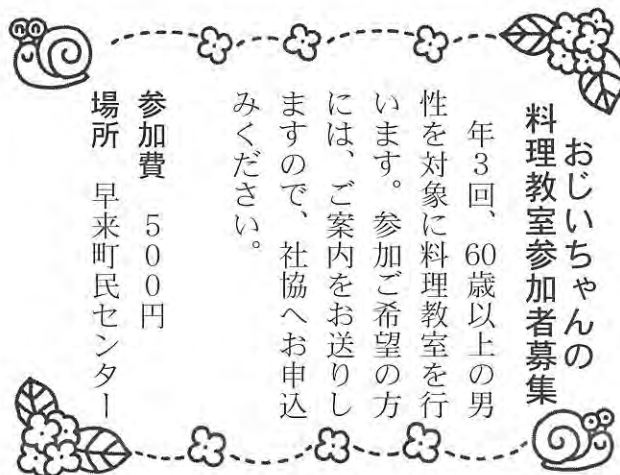 おじいちゃんの
料理教室参加者募集
年3回、60歳以上の男
性を対象に料理教室を行
います。参加ご希望の方
には、ご案内をお送りし
ますので、社協へお申込
みください。
参加費　500円
場所　早来町民センター